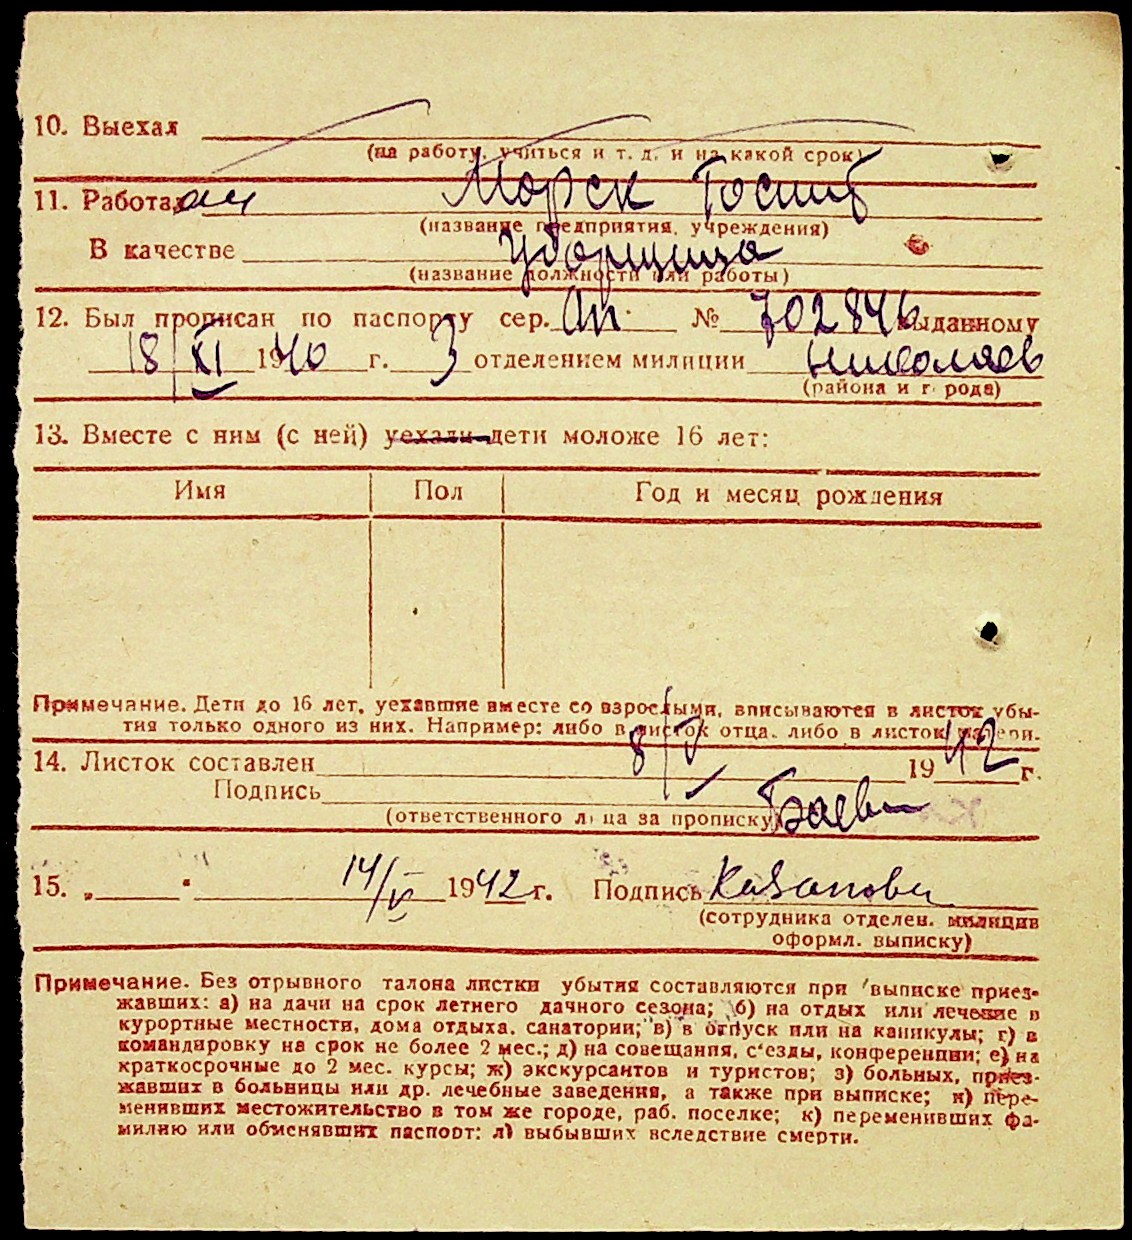 10. Выехал
(на работу, учиться и т. д. и на какой срок)
11. Работал Морск Госпит
(название предприятия, учреждения)
В качестве Уборщица
(название должности или работы)
12. Был прописан по паспорту сер. № 702846 выданному
18/XI 1940 г. 3 отделением милиции Николаев
(района и города)
13. Вместе с ним (с ней) уехали дети моложе 16 лет:
Имя Пол Год и месяц рождения
Примечание. Дети до 16 лет, уехавшие вместе со взрослыми, вписываются в листок убы-
тия только одного из них. Например: либо в листок отца, либо в листок матери.
14. Листок составлен 8/V 1942 г.
Подпись
(ответственного лица за прописку)
15. „ " 14/V 1942 г. Подпись
(сотрудника отделен. милиции
оформл. выписку)
Примечание. Без отрывного талона листки убытия составляются при выписке приез-
жавших: а) на дачи на срок летнего дачного сезона; б) на отдых или лечение в
курортные местности, дома отдыха, санатории; в) в отпуск или на каникулы; г) в
командировку на срок не более 2 мес.; д) на совещания, с'езды, конференции; е) на
краткосрочные до 2 мес. курсы; ж) экскурсантов и туристов; з) больных, приез-
жавших в больницы или др. лечебные заведения, а также при выписке; и) пере-
менивших местожительство в том же городе, раб. поселке; к) переменивших фа-
милию или обменявших паспорт; л) выбывших вследствие смерти.